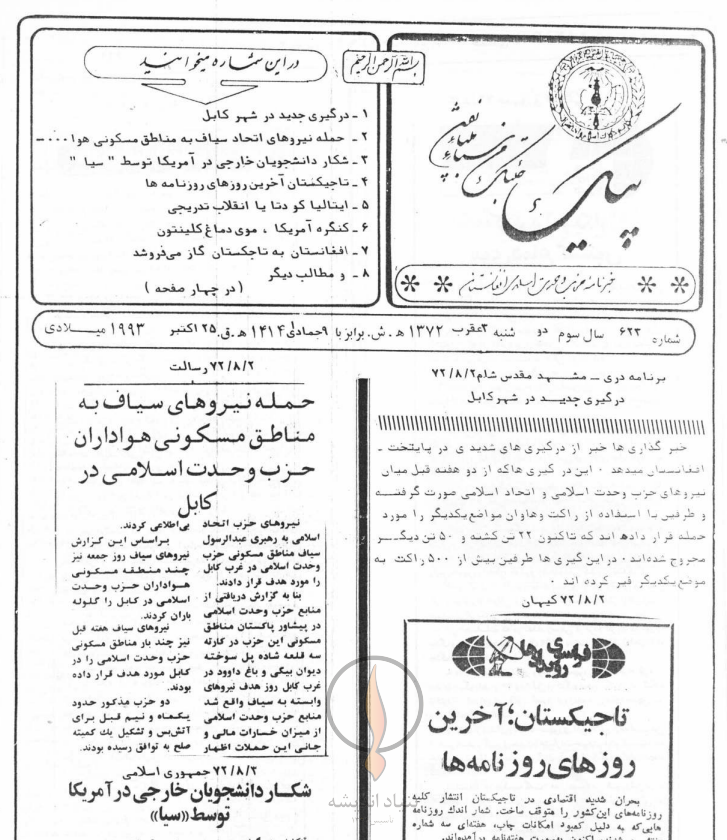 بسم الله الرحمن الرحیم
در این شماره میخوانید
۱ ـ درگیری جدید در شهر کابل
۲ ـ حمله نیروهای اتحاد سیاف به مناطق مسکونی هوا۰۰۰ـ
۳ ـ شکار دانشجویان خارجی در آمریکا توسط " سیا "
۴ ـ تاجیکستان آخرین روزهای روزنامه ها
۵ ـ ایتالیا کو دتا یا انقلاب تدریجی
۶ ـ کنگره آمریکا ، موی دماغ کلینتون
۷ ـ افغانستان به تاجکستان گاز می‌فروشد
۸ ـ و مطالب دیگر
( در چهار صفحه )
پیک
خبرنامه حزب وحدت اسلامی افغانستان
شماره ۶۲۳ سال سوم دو شنبه ۳عقرب ۱۳۷۲ ه‍ .ش. برابر با ۹جمادی۱ ۱۴۱۴ ه‍ .ق. ۲۵ اکتبر ۱۹۹۳ میلادی
برنامه دری ـ مشهد مقدس شام ۷۲/۸/۲
درگیری جدید در شهر کابل
خبر گذاری ها خبر از درگیری های شدید ی در پایتخت ـ
افغانستان میدهد ۰ این در گیری هاکه از دو هفته قبل میان
نیروهای حزب وحدت اسلامی و اتحاد اسلامی صورت گرفته
و طرفین با استفاده از راکت وهاوان مواضع یکدیگر را مورد
حمله قرار داده اند که تاکنون ۲۲ تن کشته و ۵۰ تن دیگر
مجروح شده‌اند ۰ در این گیری ها طرفین بیش از ۵۰۰ راکت به
موضع یکدیگر فیر کرده اند ۰
۷۲/۸/۲ کیهان
فراسوی رویدادها
تاجیکستان؛ آخرین
روزهای روزنامه‌ها
بحران شدید اقتصادی در تاجیکستان انتشار کلیه
روزنامه‌های این کشور را متوقف ساخت. شمار اندك روزنامه
هایی که به دلیل کمبود امکانات چاپ، هفته‌ای سه شماره
۷۲/۸/۲ رسالت
حمله نیروهای سیاف به
مناطق مسکونی هواداران
حزب وحدت اسلامی در
کابل
نیروهای حزب اتحاد
اسلامی به رهبری عبدالرسول
سیاف مناطق مسکونی حزب
وحدت اسلامی در غرب کابل
را مورد هدف قرار دادند.
بنا به گزارش دریافتی از
منابع حزب وحدت اسلامی
در پیشاور پاکستان مناطق
مسکونی این حزب در کارته
سه قلعه شاده پل سوخته
دیوان بیگی و باغ داوود در
غرب کابل روز هدف نیروهای
وابسته به سیاف واقع شد
منابع حزب وحدت اسلامی
از میزان خسارات مالی و
جانی این حملات اظهار
بی‌اطلاعی کردند.
براساس این گزارش
نیروهای سیاف روز جمعه نیز
چند منطقه مسکونی
هواداران حزب وحدت
اسلامی در کابل را گلوله
باران کردند.
نیروهای سیاف هفته قبل
نیز چند بار مناطق مسکونی
حزب وحدت اسلامی را در
کابل مورد هدف قرار داده
بودند.
دو حزب مذکور حدود
یکماه و نیم قبل برای
آتش‌بس و تشکیل یك کمیته
صلح به توافق رسیده بودند.
۷۲/۸/۲ جمهوری اسلامی
شکار دانشجویان خارجی در آمریکا
توسط «سیا»
بنیاد اندیشه